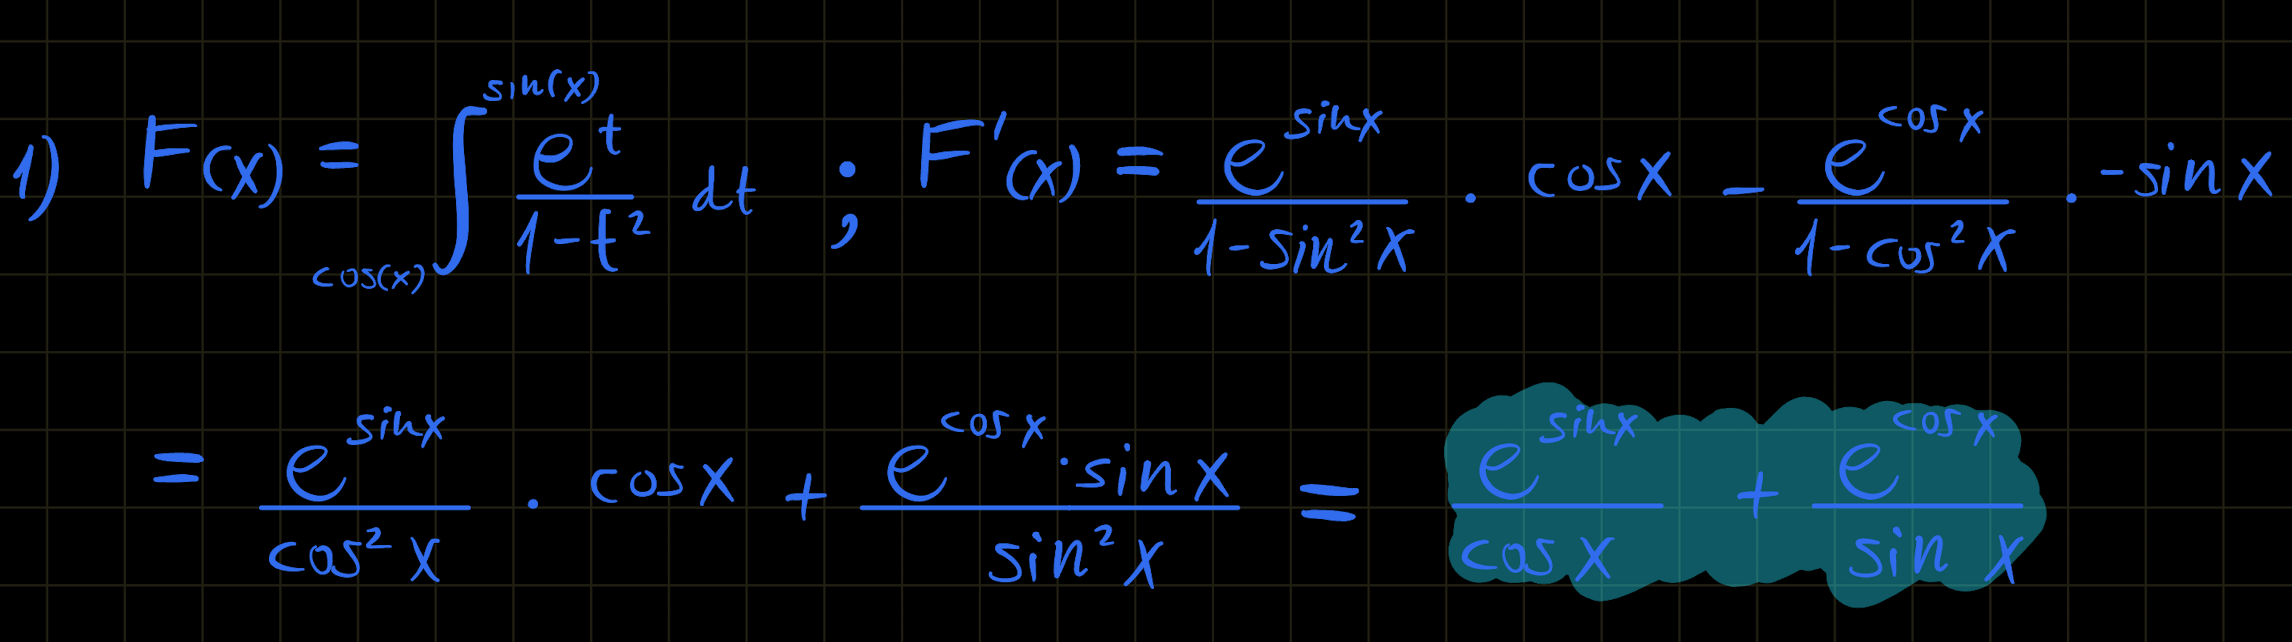 1) F(x) = ∫_{cos(x)}^{sin(x)} \frac{e^t}{1-t^2} dt ; F'(x) = \frac{e^{sin x}}{1-sin^2 x} · cos x - \frac{e^{cos x}}{1-cos^2 x} · -sin x
= \frac{e^{sin x}}{cos^2 x} · cos x + \frac{e^{cos x} · sin x}{sin^2 x} = \frac{e^{sin x}}{cos x} + \frac{e^{cos x}}{sin x}